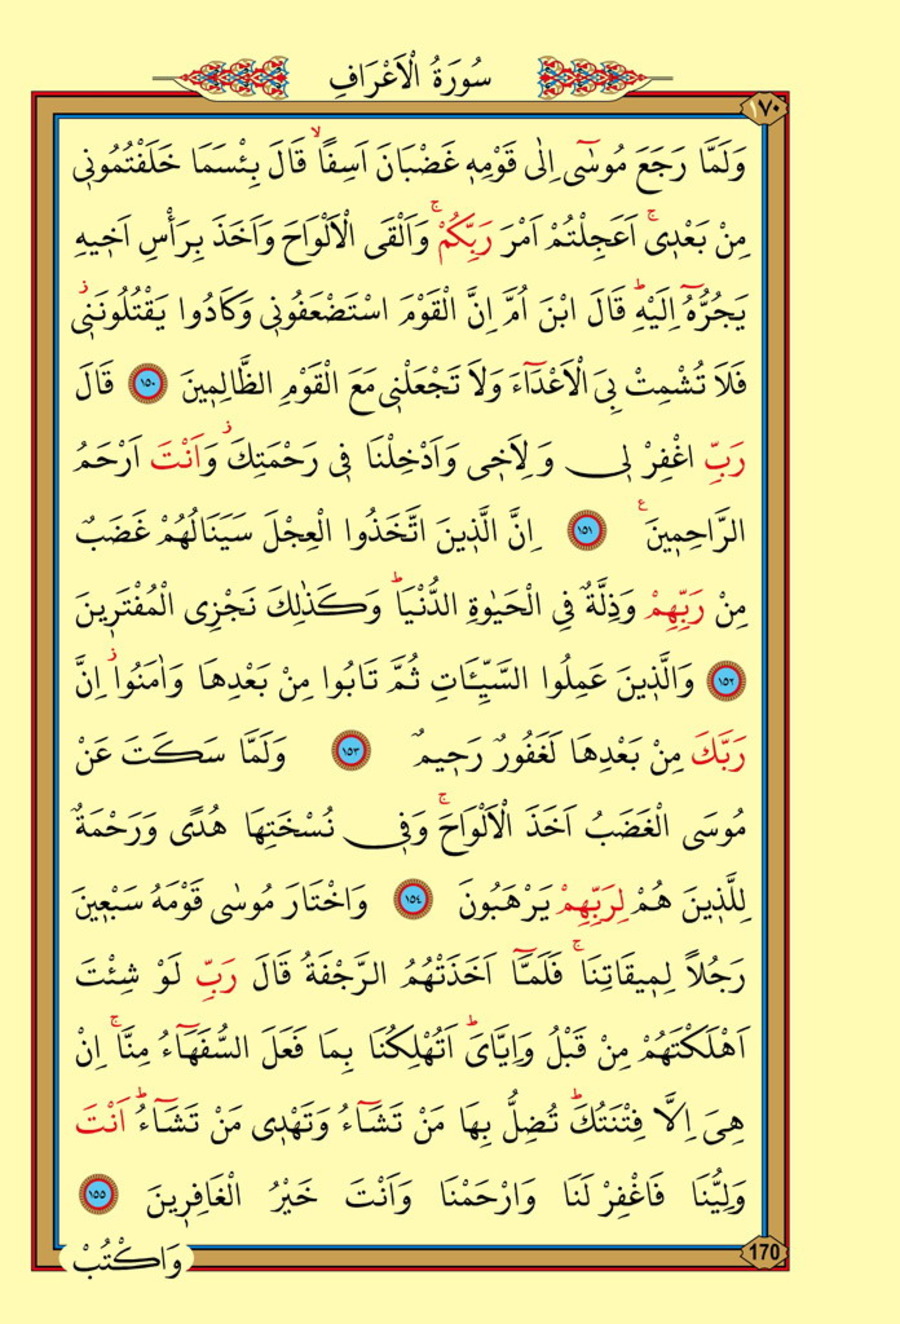 سُورَةُ الْاَعْرَافِ
١٧٠
وَلَمَّا رَجَعَ مُوسٰٓى اِلٰى قَوْمِه۪ غَضْبَانَ اَسِفًاۙ قَالَ بِئْسَمَا خَلَفْتُمُون۪ي
مِنْ بَعْد۪يۚ اَعَجِلْتُمْ اَمْرَ رَبِّكُمْۚ وَاَلْقَى الْاَلْوَاحَ وَاَخَذَ بِرَأْسِ اَخ۪يهِ
يَجُرُّهُٓ اِلَيْهِۜ قَالَ ابْنَ اُمَّ اِنَّ الْقَوْمَ اسْتَضْعَفُون۪ي وَكَادُوا يَقْتُلُونَن۪يۘ
فَلَا تُشْمِتْ بِيَ الْاَعْدَٓاءَ وَلَا تَجْعَلْن۪ي مَعَ الْقَوْمِ الظَّالِم۪ينَ ﴿١٥٠﴾ قَالَ
رَبِّ اغْفِرْ ل۪ي وَلِاَخ۪ي وَاَدْخِلْنَا ف۪ي رَحْمَتِكَۘ وَاَنْتَ اَرْحَمُ
الرَّاحِم۪ينَ۟ ﴿١٥١﴾ اِنَّ الَّذ۪ينَ اتَّخَذُوا الْعِجْلَ سَيَنَالُهُمْ غَضَبٌ
مِنْ رَبِّهِمْ وَذِلَّةٌ فِي الْحَيٰوةِ الدُّنْيَاۜ وَكَذٰلِكَ نَجْزِي الْمُفْتَر۪ينَ
﴿١٥٢﴾ وَالَّذ۪ينَ عَمِلُوا السَّيِّـَٔاتِ ثُمَّ تَابُوا مِنْ بَعْدِهَا وَاٰمَنُواۘ اِنَّ
رَبَّكَ مِنْ بَعْدِهَا لَغَفُورٌ رَح۪يمٌ ﴿١٥٣﴾ وَلَمَّا سَكَتَ عَنْ
مُوسَى الْغَضَبُ اَخَذَ الْاَلْوَاحَۚ وَف۪ي نُسْخَتِهَا هُدًى وَرَحْمَةٌ
لِلَّذ۪ينَ هُمْ لِرَبِّهِمْ يَرْهَبُونَ ﴿١٥٤﴾ وَاخْتَارَ مُوسٰى قَوْمَهُ سَبْع۪ينَ
رَجُلًا لِم۪يقَاتِنَاۚ فَلَمَّٓا اَخَذَتْهُمُ الرَّجْفَةُ قَالَ رَبِّ لَوْ شِئْتَ
اَهْلَكْتَهُمْ مِنْ قَبْلُ وَاِيَّايَۜ اَتُهْلِكُنَا بِمَا فَعَلَ السُّفَهَٓاءُ مِنَّاۚ اِنْ
هِيَ اِلَّا فِتْنَتُكَۜ تُضِلُّ بِهَا مَنْ تَشَٓاءُ وَتَهْد۪ي مَنْ تَشَٓاءُۜ اَنْتَ
وَلِيُّنَا فَاغْفِرْ لَنَا وَارْحَمْنَا وَاَنْتَ خَيْرُ الْغَافِر۪ينَ ﴿١٥٥﴾
وَاكْتُبْ
170